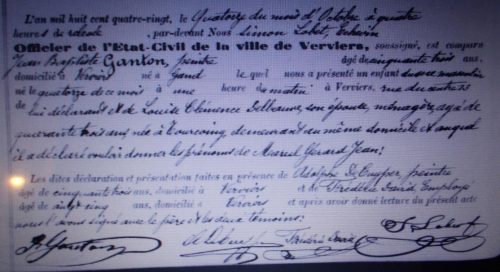 L'an mil huit cent quatre-vingt, le Quatorze du mois d'Octobre à quatre
heures de relevée, par-devant Nous Simon Lobet, Echevin
Officier de l'Etat-Civil de la ville de Verviers, soussigné, est comparu
Jean Baptiste Ganton, peintre âgé de cinquante trois ans,
domicilié à Verviers né à Gand lequel nous a présenté un enfant du sexe masculin
né le quatorze de ce mois à une heure du matin à Verviers, rue du centre 23
de lui déclarant et de Louise Clémence Delbauve, son épouse ménagère, agée de
quarante trois ans née à Tourcoing, demeurant au même domicile et auquel
il a déclaré vouloir donner les prénoms de Marcel Gérard Jean;
Les dites déclaration et présentation faites en présence de Adolphe De Cuyper, peintre
âgé de cinquante trois ans, domicilié à Verviers et de Frédéric David Employé
âgé de vingt cinq ans, domicilié à Verviers et après avoir donné lecture du présent acte
nous l'avons signé avec le père et les deux témoins:
Frédéric David S. Lobet